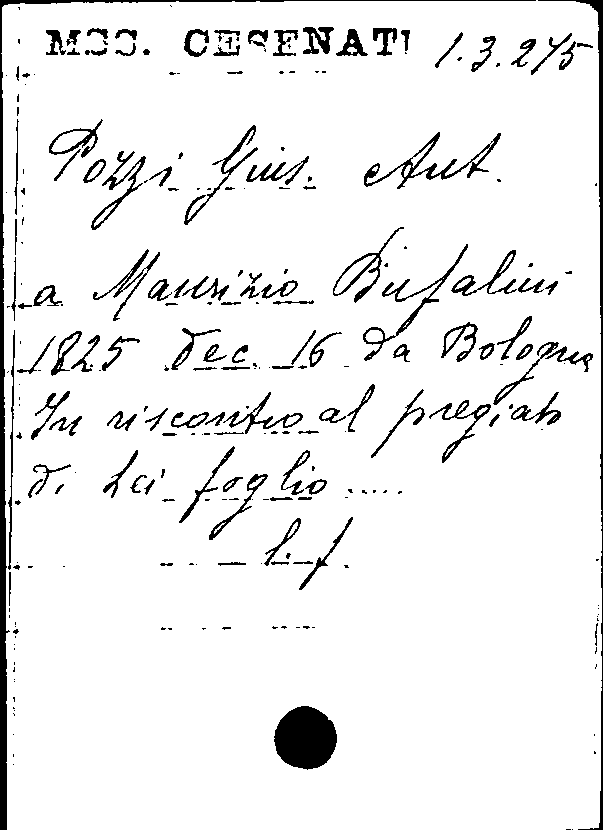 MSS. CESENATI 1.3.275
Pozzi Gius. Ant.
a Maurizio Bufalini
1825 dec. 16 da Bologna
In riscontro al pregiato
di Lei foglio .....
l. f.